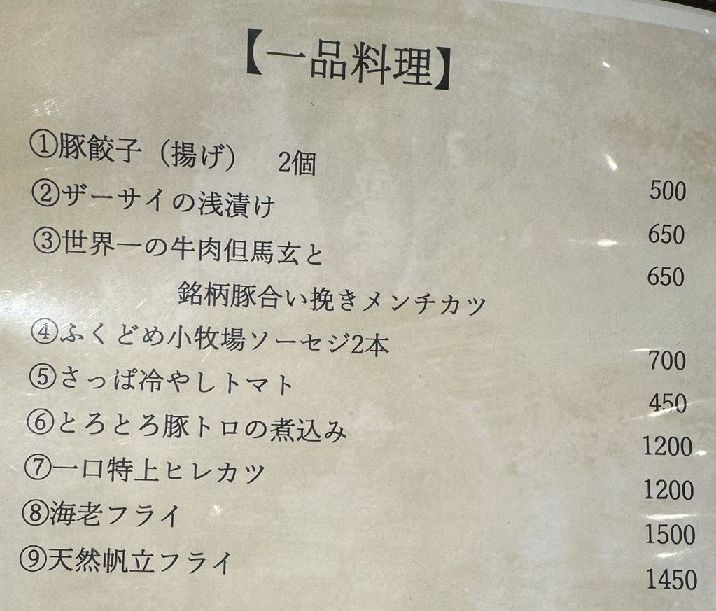 【一品料理】
①豚餃子（揚げ）　2個 500
②ザーサイの浅漬け 650
③世界一の牛肉但馬玄と 650
銘柄豚合い挽きメンチカツ
④ふくどめ小牧場ソーセジ2本 700
⑤さっぱ冷やしトマト 450
⑥とろとろ豚トロの煮込み 1200
⑦一口特上ヒレカツ 1200
⑧海老フライ 1500
⑨天然帆立フライ 1450